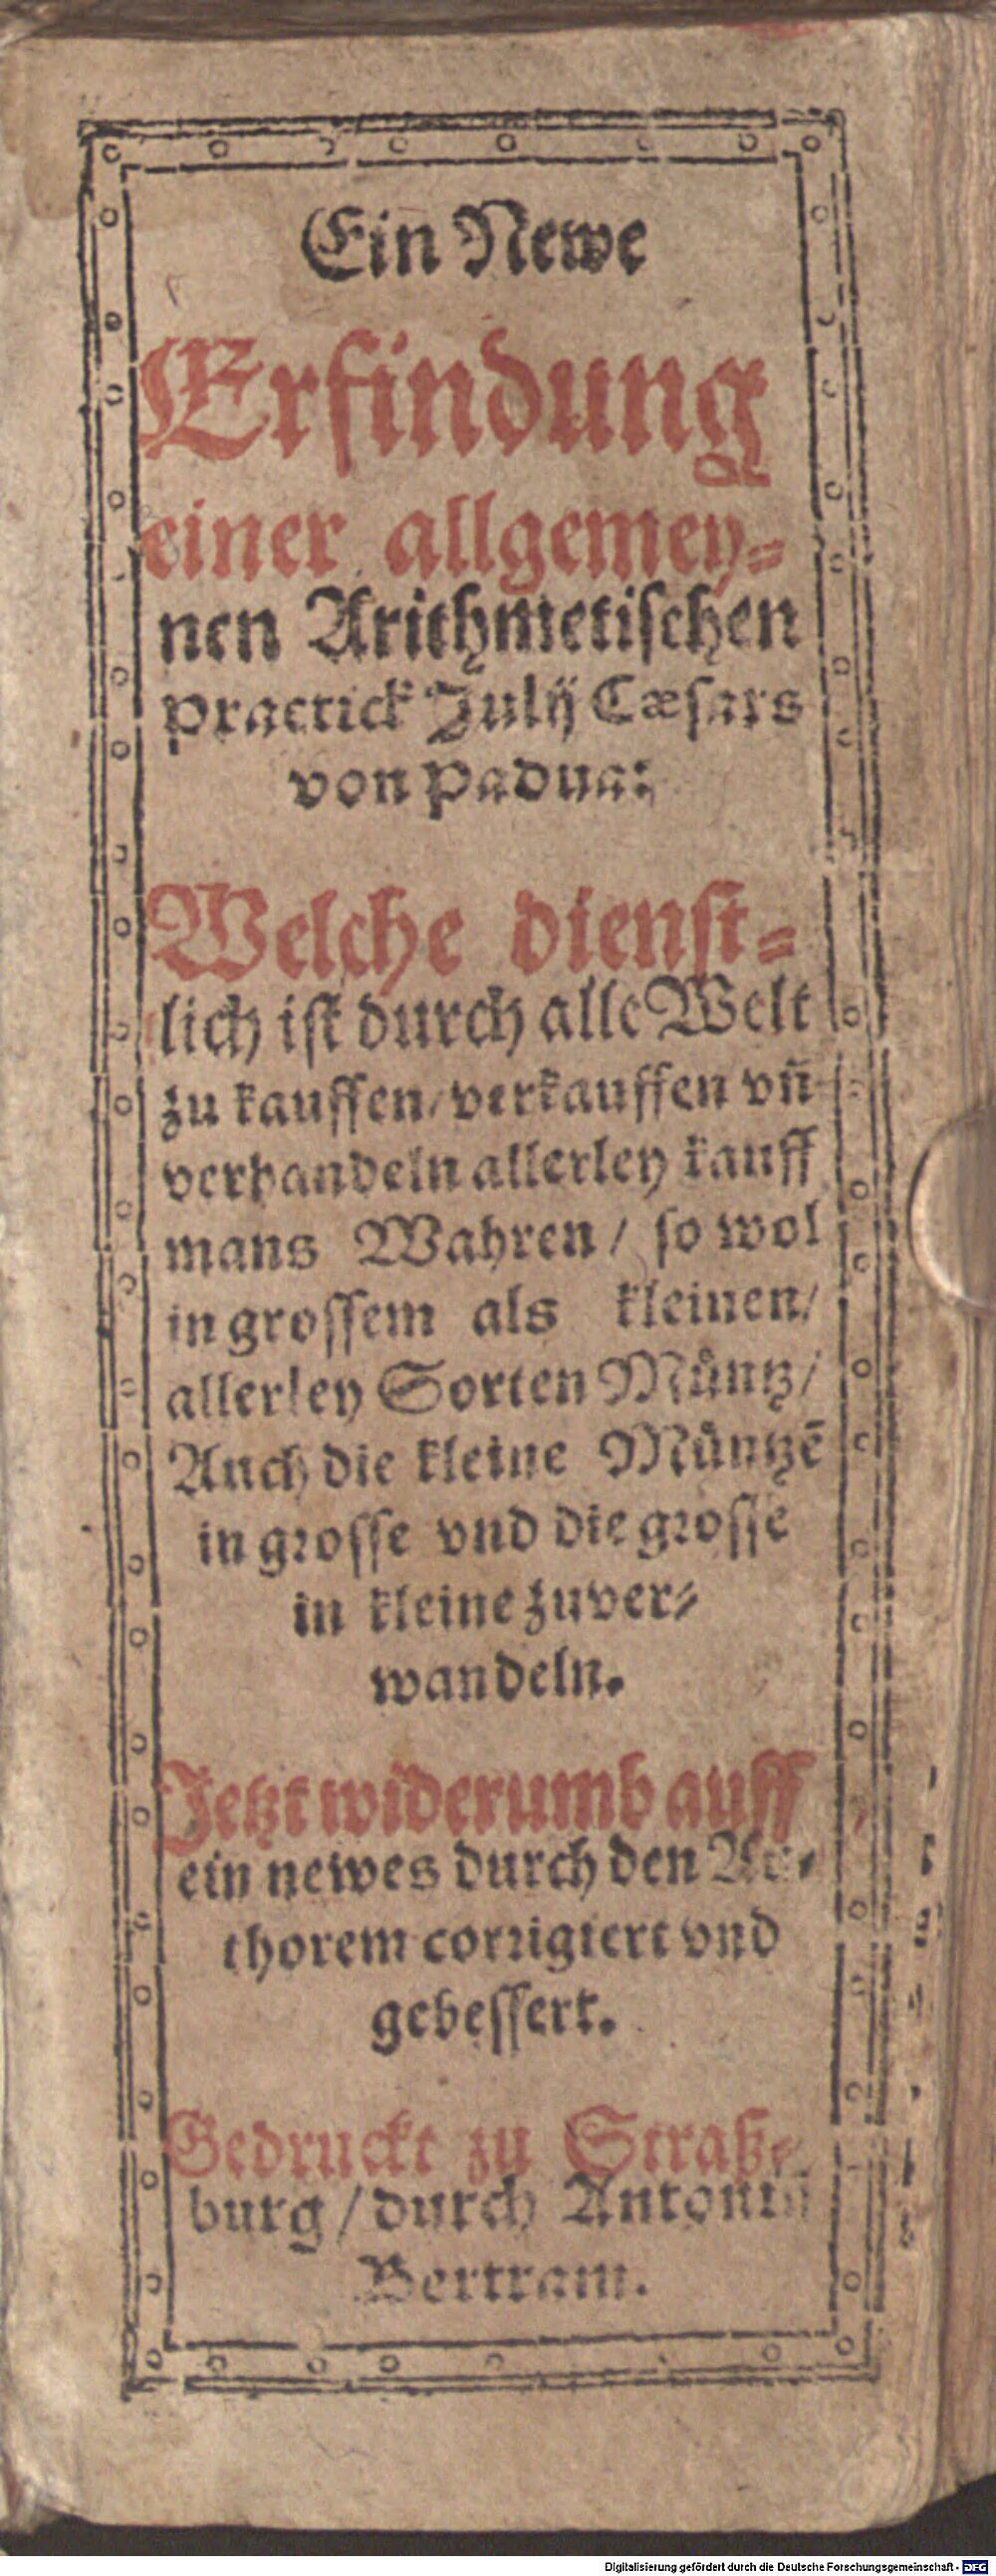 Ein Newe
Erfindung
einer allgemey⸗
nen Arithmetischen
practick Julij Cæsars
von Padua:
Welche dienst⸗
lich ist durch alle Welt
zu kauffen/ verkauffen vñ
verhandeln allerley kauff
mans Wahren / so wol
in grossem als kleinen/
allerley Sorten Muͤntz/
Auch die kleine Muͤntzē
in grosse vnd die grosse
in kleine zuver⸗
wandeln.
Jetzt widerumb auff
ein newes durch den Au⸗
thorem corrigiert vnd
gebessert.
Gedruckt zu Straß⸗
burg / durch Antoniū
Bertram.
Digitalisierung gefördert durch die Deutsche Forschungsgemeinschaft - DFG